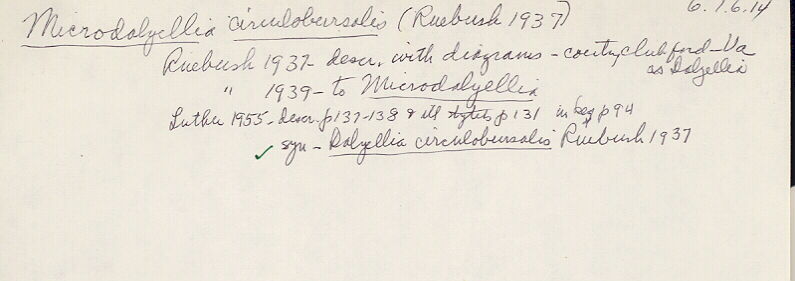 6.1.6.14
Microdalyellia circulobursalis (Ruebush 1937)
Ruebush 1937 - descr. with diagrams - country club ford - Va
as Dalyellia
" 1939 - to Microdalyellia
Luther 1955 - descr. p 137-138 & ill p 131 in key p 94
✓ syn - Dalyellia circulobursalis Ruebush 1937